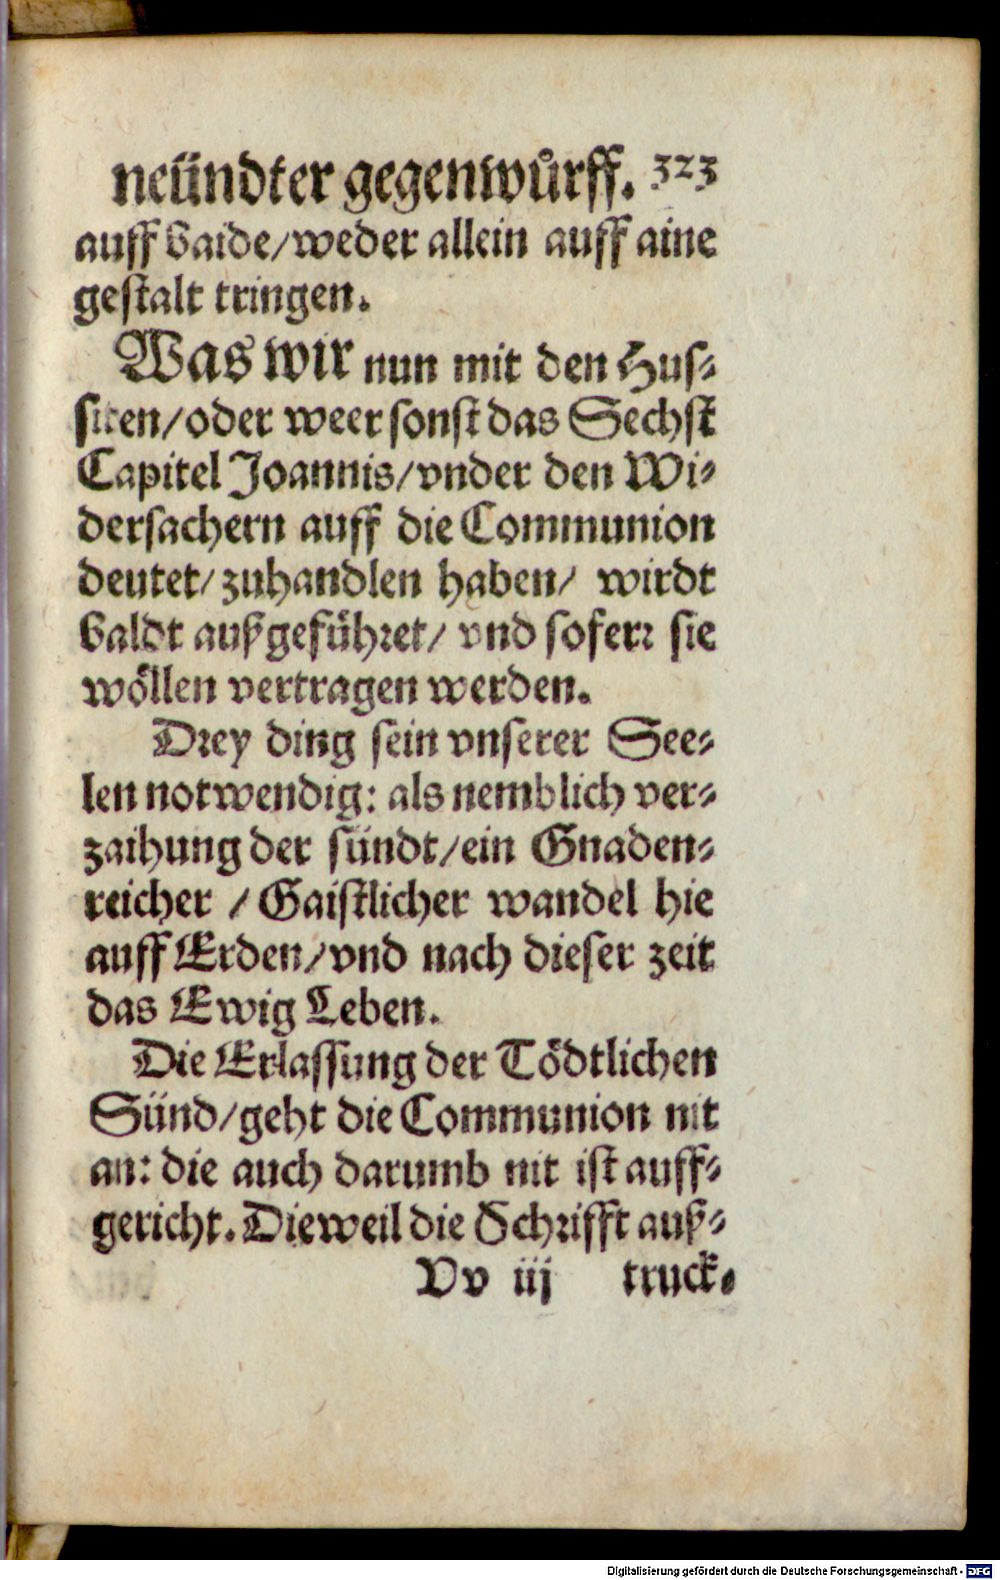 neündter gegenwůrff. 323
auff baide/weder allein auff aine
gestalt tringen.
Was wir nun mit den Hus-
siten/oder weer sonst das Sechst
Capitel Joannis/vnder den Wi-
dersachern auff die Communion
deutet/zuhandlen haben/ wirdt
baldt außgeführet/ vnd soferr sie
wöllen vertragen werden.
Drey ding sein vnserer See-
len notwendig: als nemblich ver-
zaihung der sündt/ein Gnaden-
reicher / Gaistlicher wandel hie
auff Erden/vnd nach dieser zeit
das Ewig Leben.
Die Erlassung der Tödtlichen
Sünd/geht die Communion nit
an: die auch darumb nit ist auff-
gericht. Dieweil die Schrifft auß-
Vv iij truck-
Digitalisierung gefördert durch die Deutsche Forschungsgemeinschaft - DFG